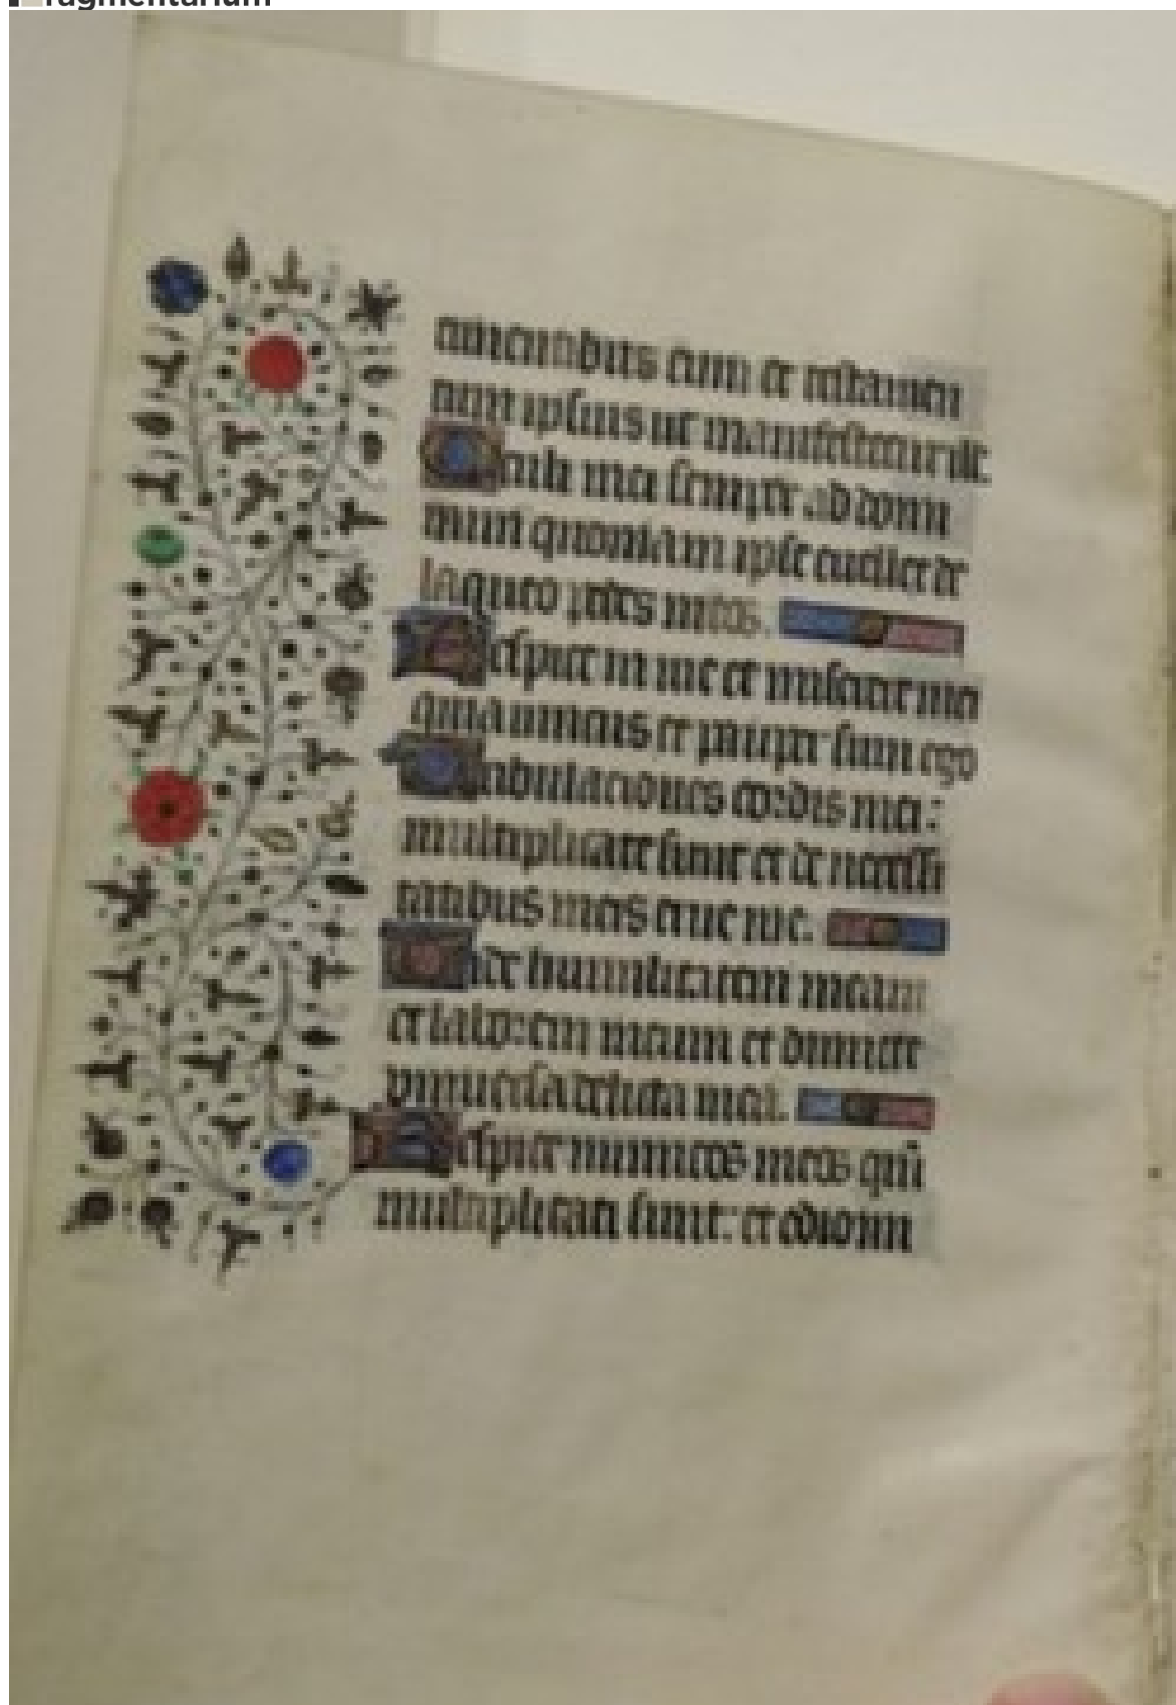 ragmentarium
eum et testamen
tum ipsius ut manifestetur illis.
Oculi mei semper ad domi
num quoniam ipse evellet de
laqueo pedes meos.
Respice in me et miserere mei
quia unicus et pauper sum ego
Tribulationes cordis mei:
multiplicate sunt et de necessi
tatibus meis erue me.
Vide humilitatem meam
et laborem meum et dimitte
universa delicta mea.
Respice inimicos meos qm̄
multiplicati sunt: et odio in